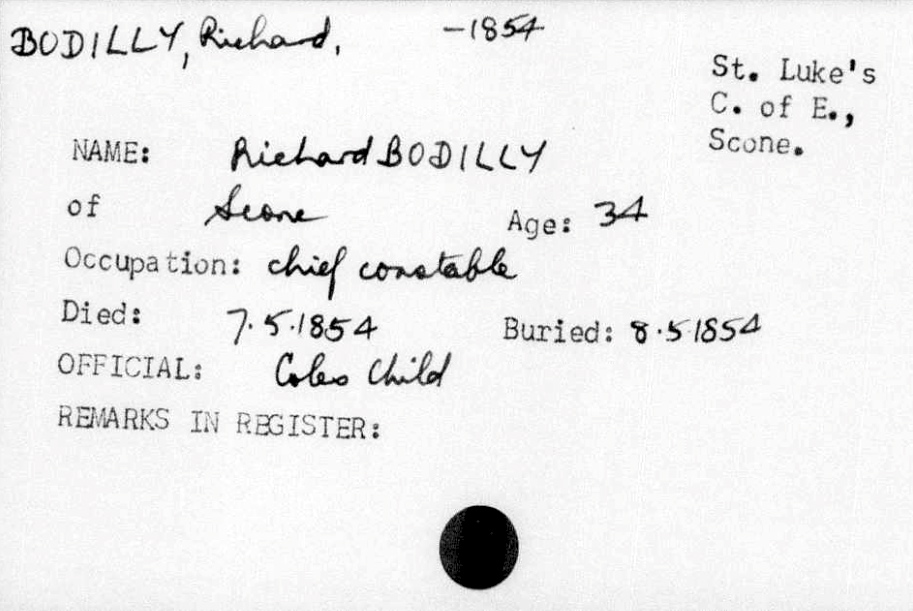 BODILLY, Richard. -1854
St. Luke's
C. of E.,
Scone.
NAME: Richard BODILLY
of Scone Age: 34
Occupation: chief constable
Died: 7.5.1854 Buried: 8.5.1854
OFFICIAL: Coles Child
REMARKS IN REGISTER: